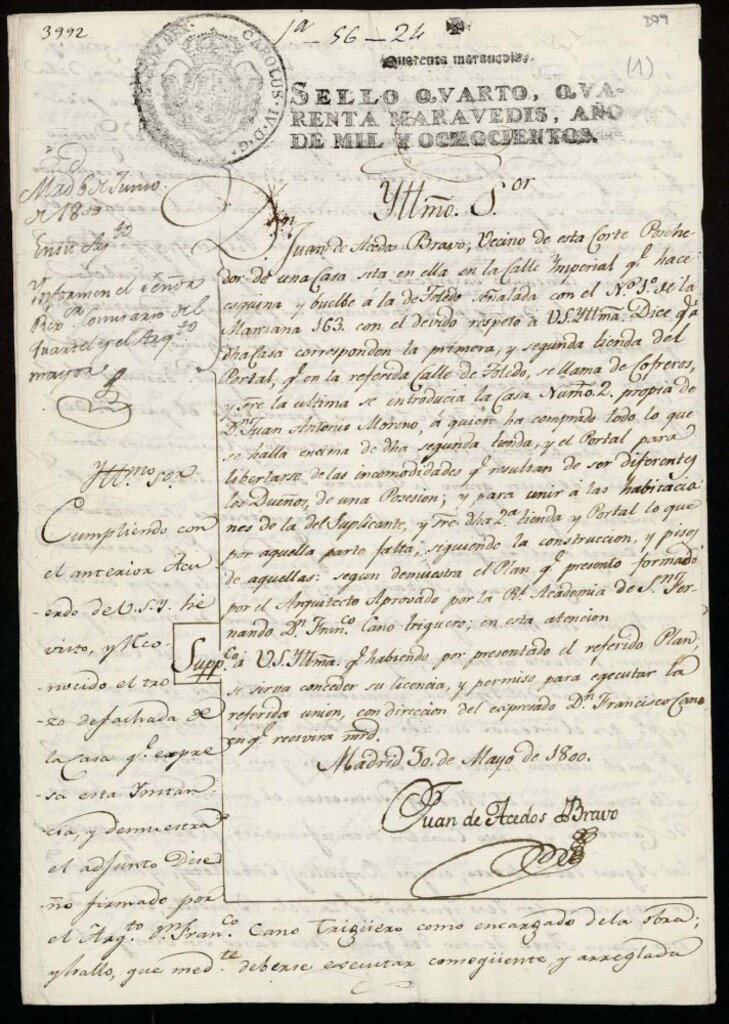 3992
1ª - 56 - 24
D99
Quarenta maravedis.
(1)
CAROLUS. IV. D. G.
SELLO QVARTO, QVA-
RENTA MARAVEDIS, AÑO
DE MIL Y OCHOCIENTOS.
Mad.d 6 de Junio
de 1800
Informen el Señor
Rex.or Comisario del
Quartel y el Arq.to
mayor
Yttmo. S.or
Dn. Juan de Acedos Bravo, Vecino de esta Corte Posehe-
dor de una Casa sita en ella en la Calle Ymperial q.e hace
esquina y buelbe á la de Toledo señalada con el N.o 1.o de la
Manzana 163. con el devido respeto á V.S.Yttma. Dice q.e á
dha Casa corresponden la primera, y segunda tienda del
Portal, q.e en la referida Calle de Toledo, se llama de Cofreros,
y sre la ultima se introducia la Casa Numo. 2. propia de
Dn. Juan Antonio Moreno, á quien ha comprado todo lo que
se halla encima de dha segunda tienda, y el Portal para
libertarse de las incomodidades q.e resultan de ser diferentes
los Dueños, de una Posesion; y para unir á las habitacio-
nes de la del Suplicante, y sre dha 2.a tienda y Portal lo que
por aquella parte falta, siguiendo la construccion, y pisos
de aquellas: segun demuestra el Plan q.e presento formado
por el Arquitecto Aprovado por la Rl. Academia de Sn. Fer-
nando Dn. Fran.co Cano Triguero; en esta atencion
Supp.co á V.S.Yttma. q.e habiendo por presentado el referido Plan,
se sirva conceder su licencia, y permiso para egecutar la
referida union, con direccion del expresado Dn. Francisco Cano
en q.e recivira mrd.
Madrid 30. de Mayo de 1800.
Juan de Acedos Bravo
Yttmo. sor.
Cumpliendo con
el anterior Acu-
erdo de V.S.Y. he
visto, y reco-
nocido el tro-
zo de fachada de
la Casa q.e expre-
sa esta Instan-
cia, y demuestra
el adjunto Dise-
ño firmado por
el Arq.to Dn. Fran.co Cano Trigüero como encargado de la obra;
y hallo, que med.te deberse executar consegüente, y arreglada